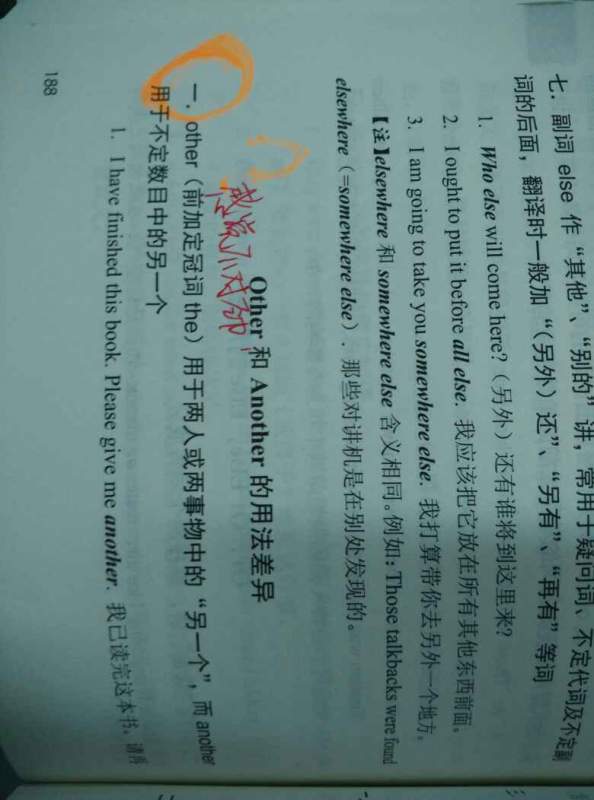 七. 副词 else 作“其他”、“别的”讲, 常用于疑问词、不定代词及不定副
词的后面, 翻译时一般加“(另外) 还”、“另有”、“再有”等词
1. Who else will come here? (另外) 还有谁将到这里来?
2. I ought to put it before all else. 我应该把它放在所有其他东西前面。
3. I am going to take you somewhere else. 我打算带你去另外一个地方。
【注】elsewhere 和 somewhere else 含义相同。例如: Those talkbacks were found
elsewhere (=somewhere else). 那些对讲机是在别处发现的。
Other 和 Another 的用法差异
一. other (前加定冠词 the) 用于两人或两事物中的“另一个”, 而 another
用于不定数目中的另一个
1. I have finished this book. Please give me another. 我已读完这本书。请再
188